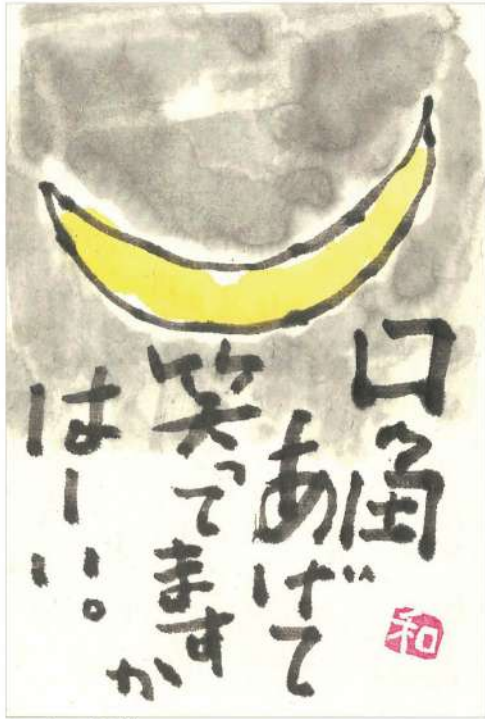 口角
あげて
笑ってますか
はーい。
和